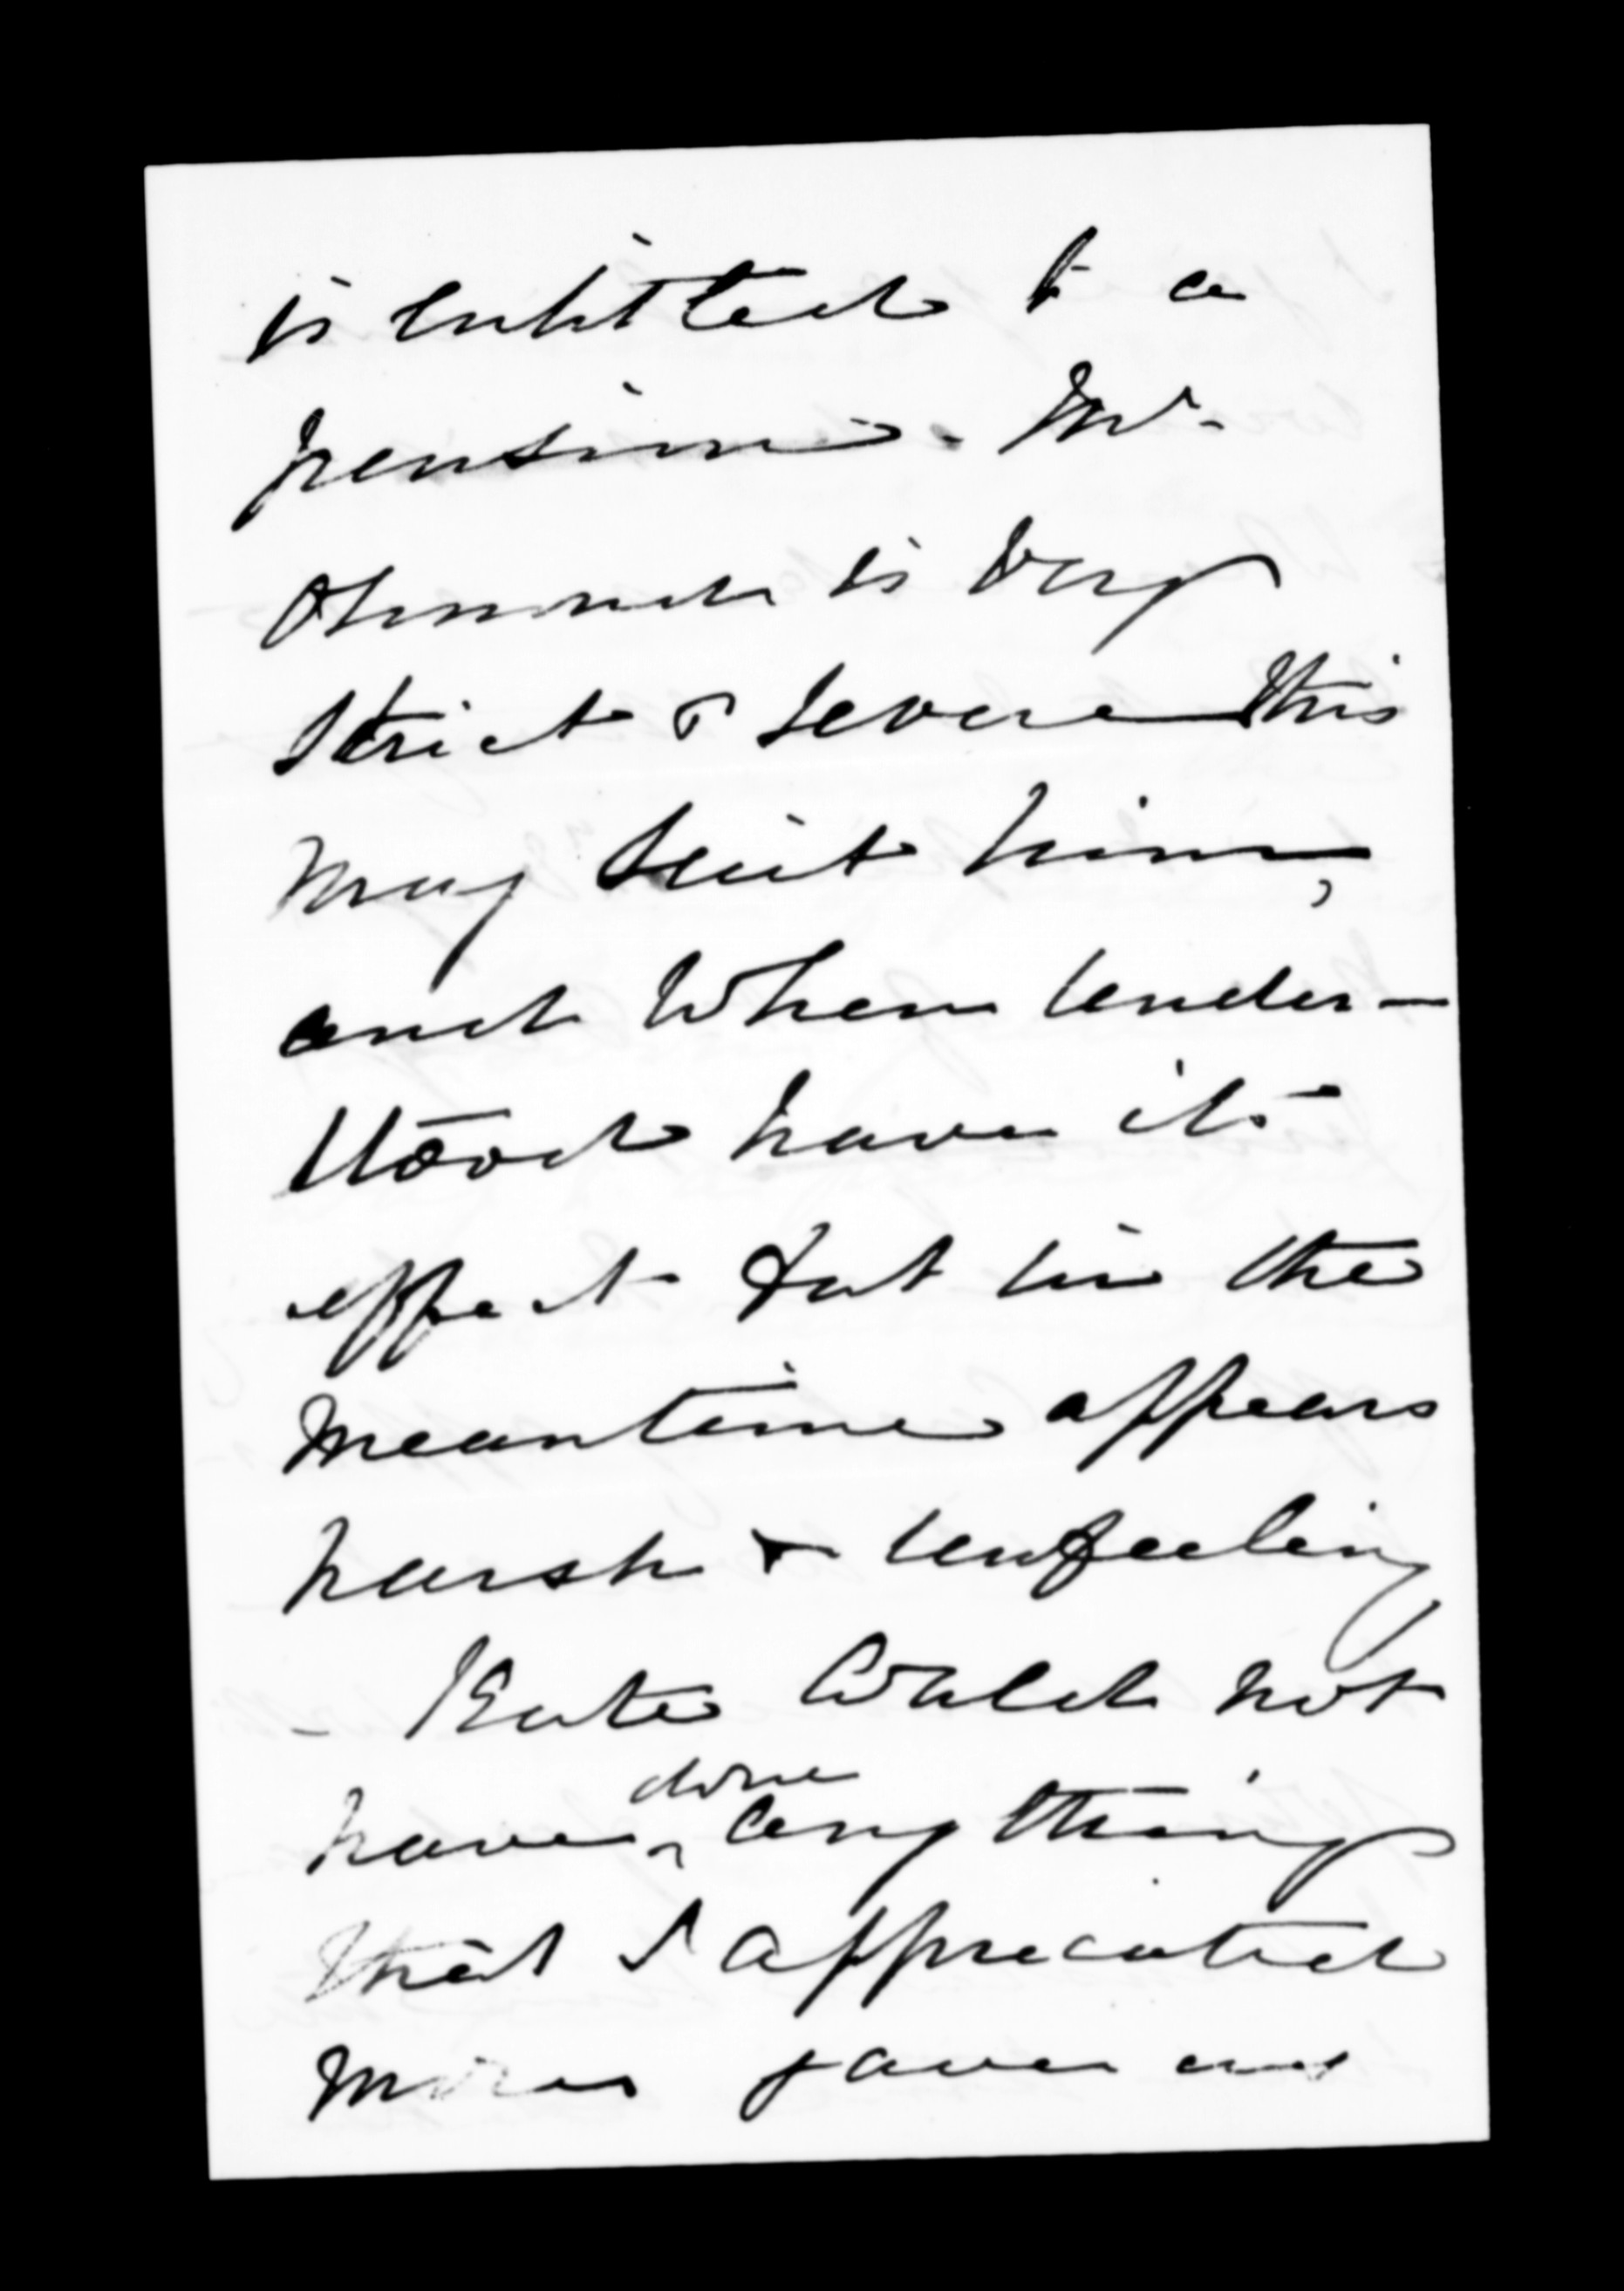 is entitled to a
pension. Mr.
Ormond is very
strict & severe this
may suit him,
and when under-
stood have its
effect but in the
meantime appears
harsh & unfeeling
- Kate could not
have done anything
that I appreciated
more